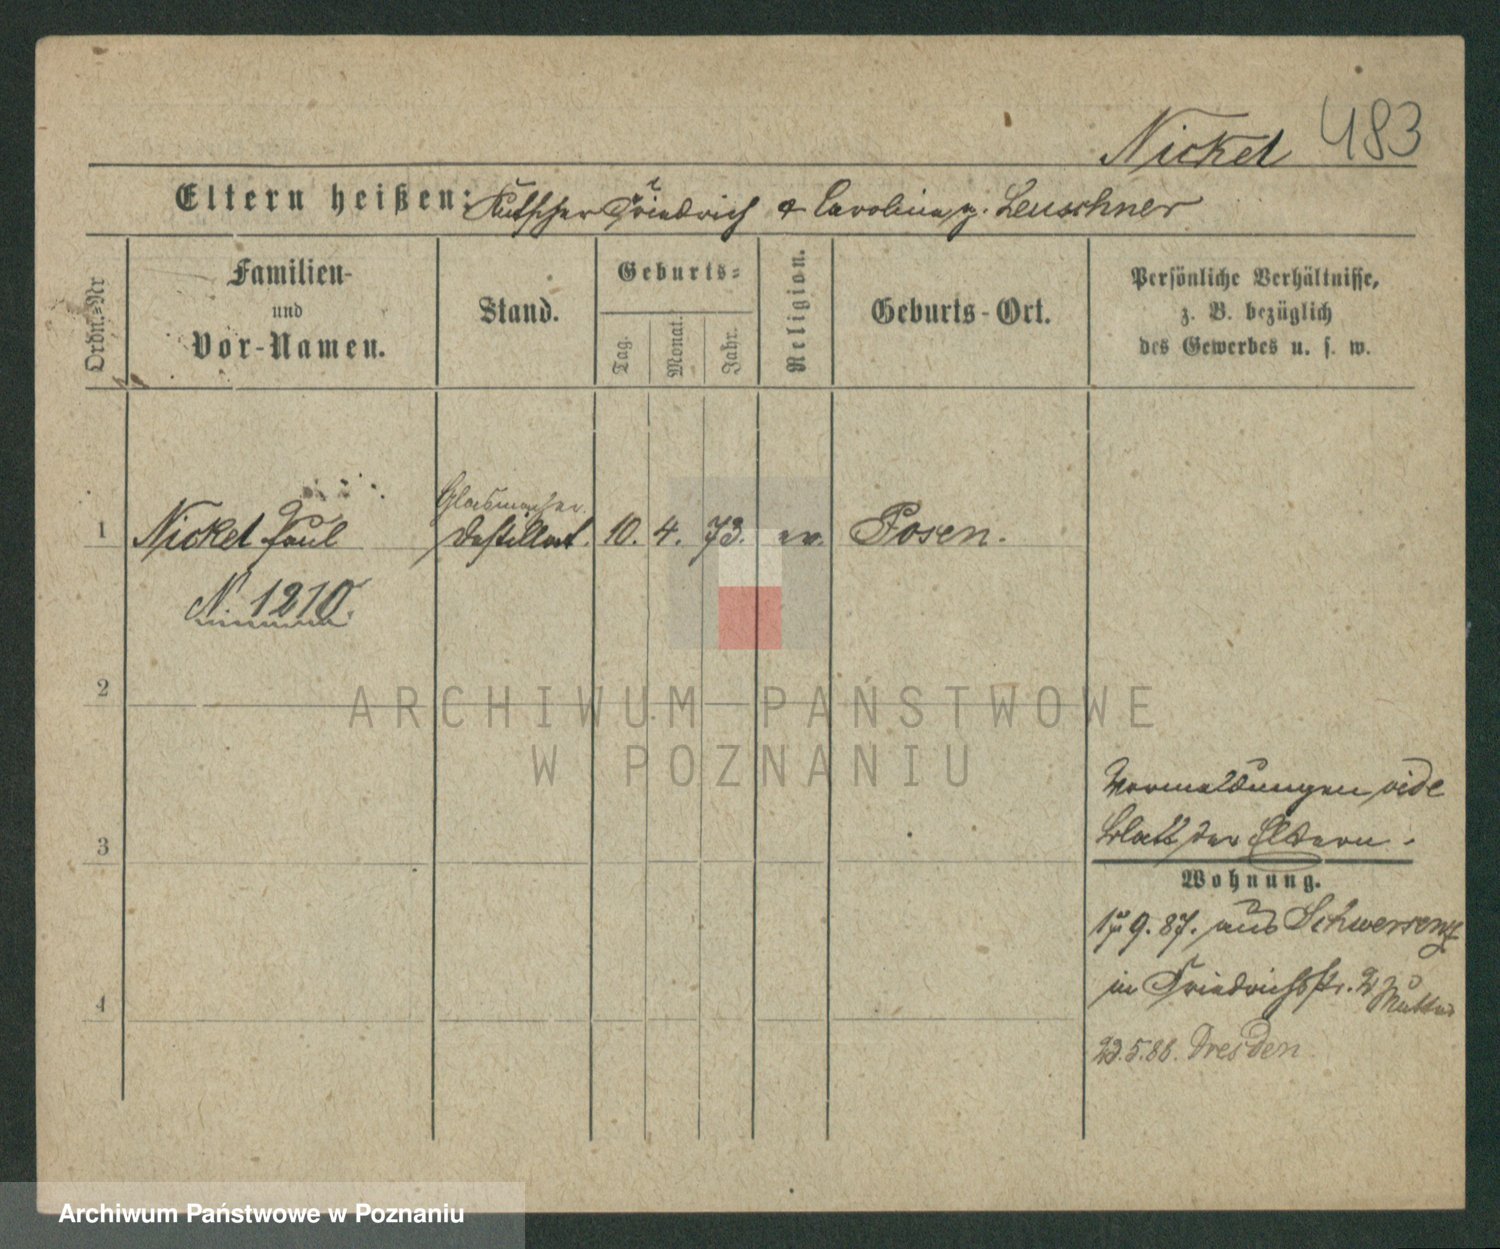 Nickel 483
Eltern heißen: Kutscher Friedrich & Carolina g. Leuschner
Ordn.-Nr
Familien-
und
Vor-Namen.
Stand.
Geburts-
Tag.
Monat.
Jahr.
Religion.
Geburts-Ort.
Persönliche Verhältnisse,
z. B. bezüglich
des Gewerbes u. s. w.
Glasmacher
1 Nickel Paul Destillat. 10. 4. 73. ev. Posen.
N. 1210.
2
ARCHIWUM PAŃSTWOWE
W POZNANIU
Vormeldungen vide
3 Blatt der Eltern.
Wohnung.
9. 87. aus Schwersenz
in Friedrichstr. zu
Mutter
4
23.5.88. Dresden
Archiwum Państwowe w Poznaniu